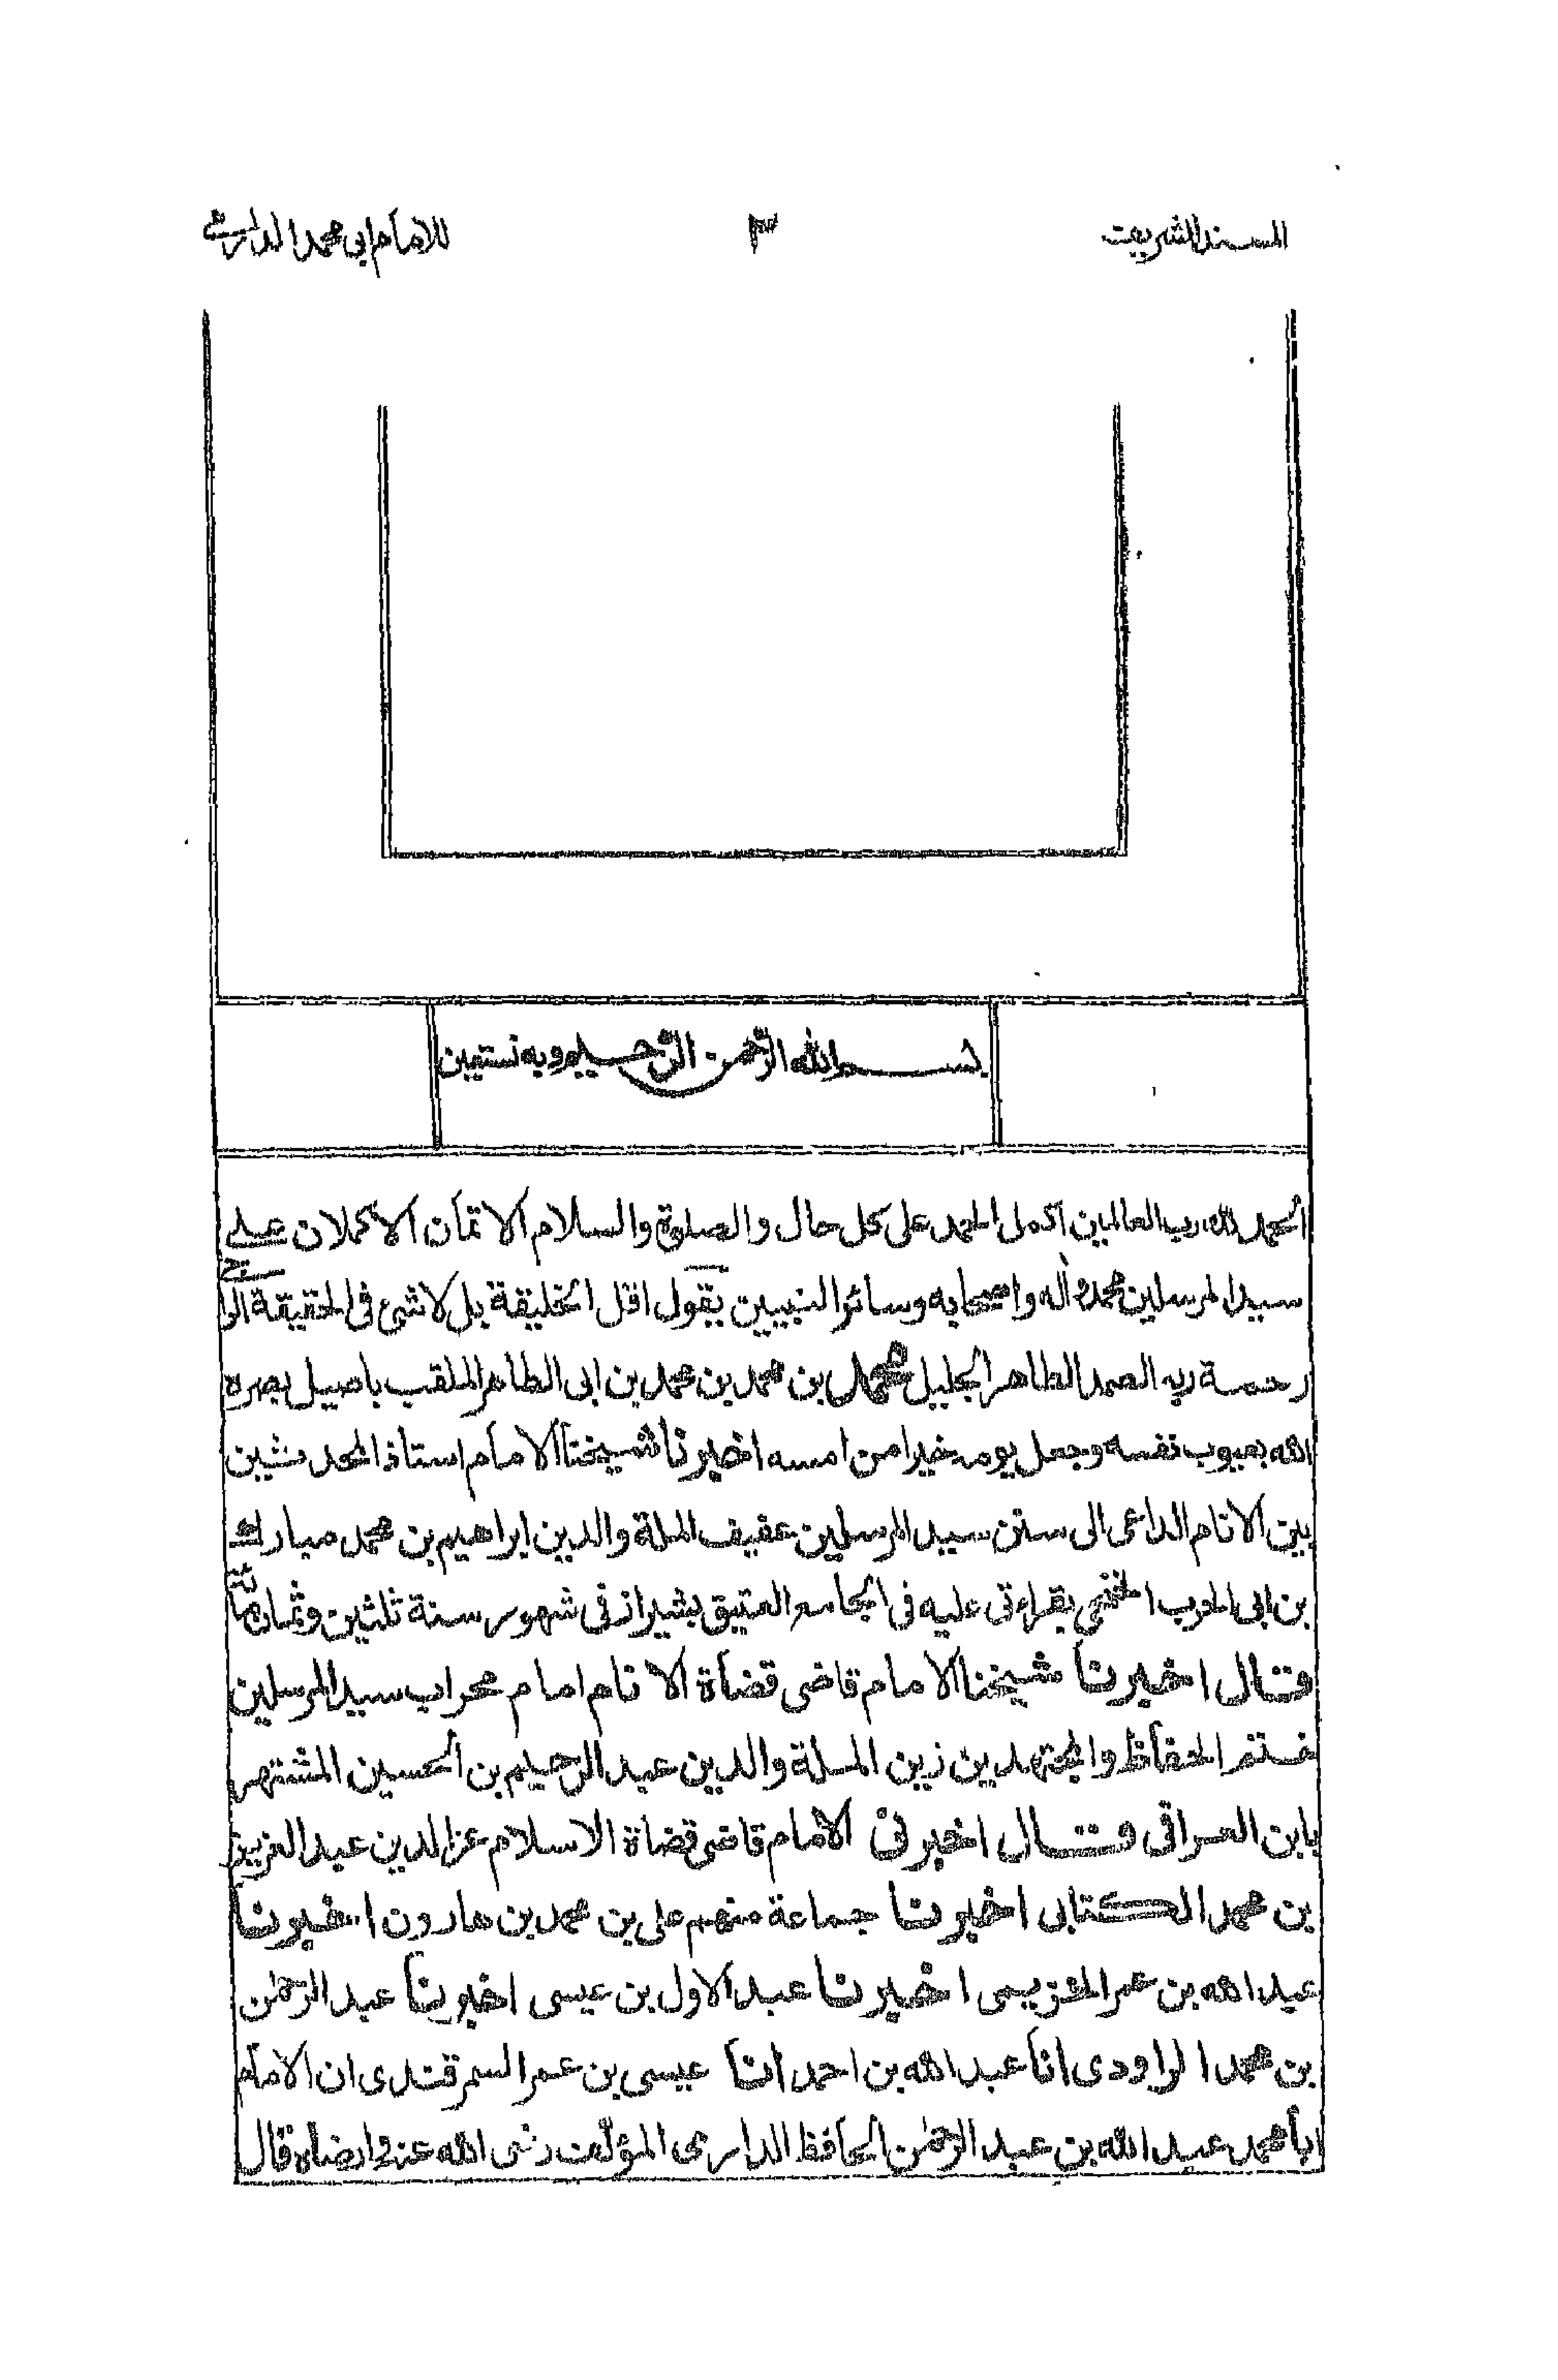 المسند الشريف ٣ للامام ابى محمد الدارمى
بسم الله الرحمن الرحيم وبه نستعين
الحمد لله رب العالمين اكمل الحمد على كل حال والصلوة والسلام الاتمان الاكملان على
سيد المرسلين محمد واٰله واصحابه وسائر النبيين يقول اقل الخليقة بل لا شئ فى الحقيقة الراجى
رحمة ربه الصمد الطاهر الجليل محمد بن محمد بن محمد بن ابى الطاهر الملقب باصيل بصره
الله بعيوب نفسه وجعل يومه خيرا من امسه اخبرنا شيخنا الامام استاذ المحدثين
بين الانام الداعى الى سنن سيد المرسلين عفيف الملة والدين ابراهيم بن محمد مبارك
بن ابى الحرب الخنجى بقراءتى عليه فى الجامع العتيق بشيراز فى شهور سنة ثلثين وثمانمائة
قال اخبرنا شيخنا الامام قاضى قضاة الانام امام محراب سيد المرسلين
مختتم الحفاظ والمجتهدين زين الملة والدين عبد الرحيم بن الحسين المشتهر
بابن العراقى قال اخبرنى الامام قاضى قضاة الاسلام عز الدين عبد العزيز
بن محمد الكتانى اخبرنا جماعة منهم على بن محمد بن هارون اخبرنا
عبد الله بن عمر الحزيمى اخبرنا عبد الاول بن عيسى اخبرنا عبد الرحمٰن
بن محمد الداودى انا عبد الله بن احمد انا عيسى بن عمر السمرقندى ان الامام
ابا محمد عبد الله بن عبد الرحمٰن الحافظ الدارمى المؤلف رضى الله عنه وارضاه قال